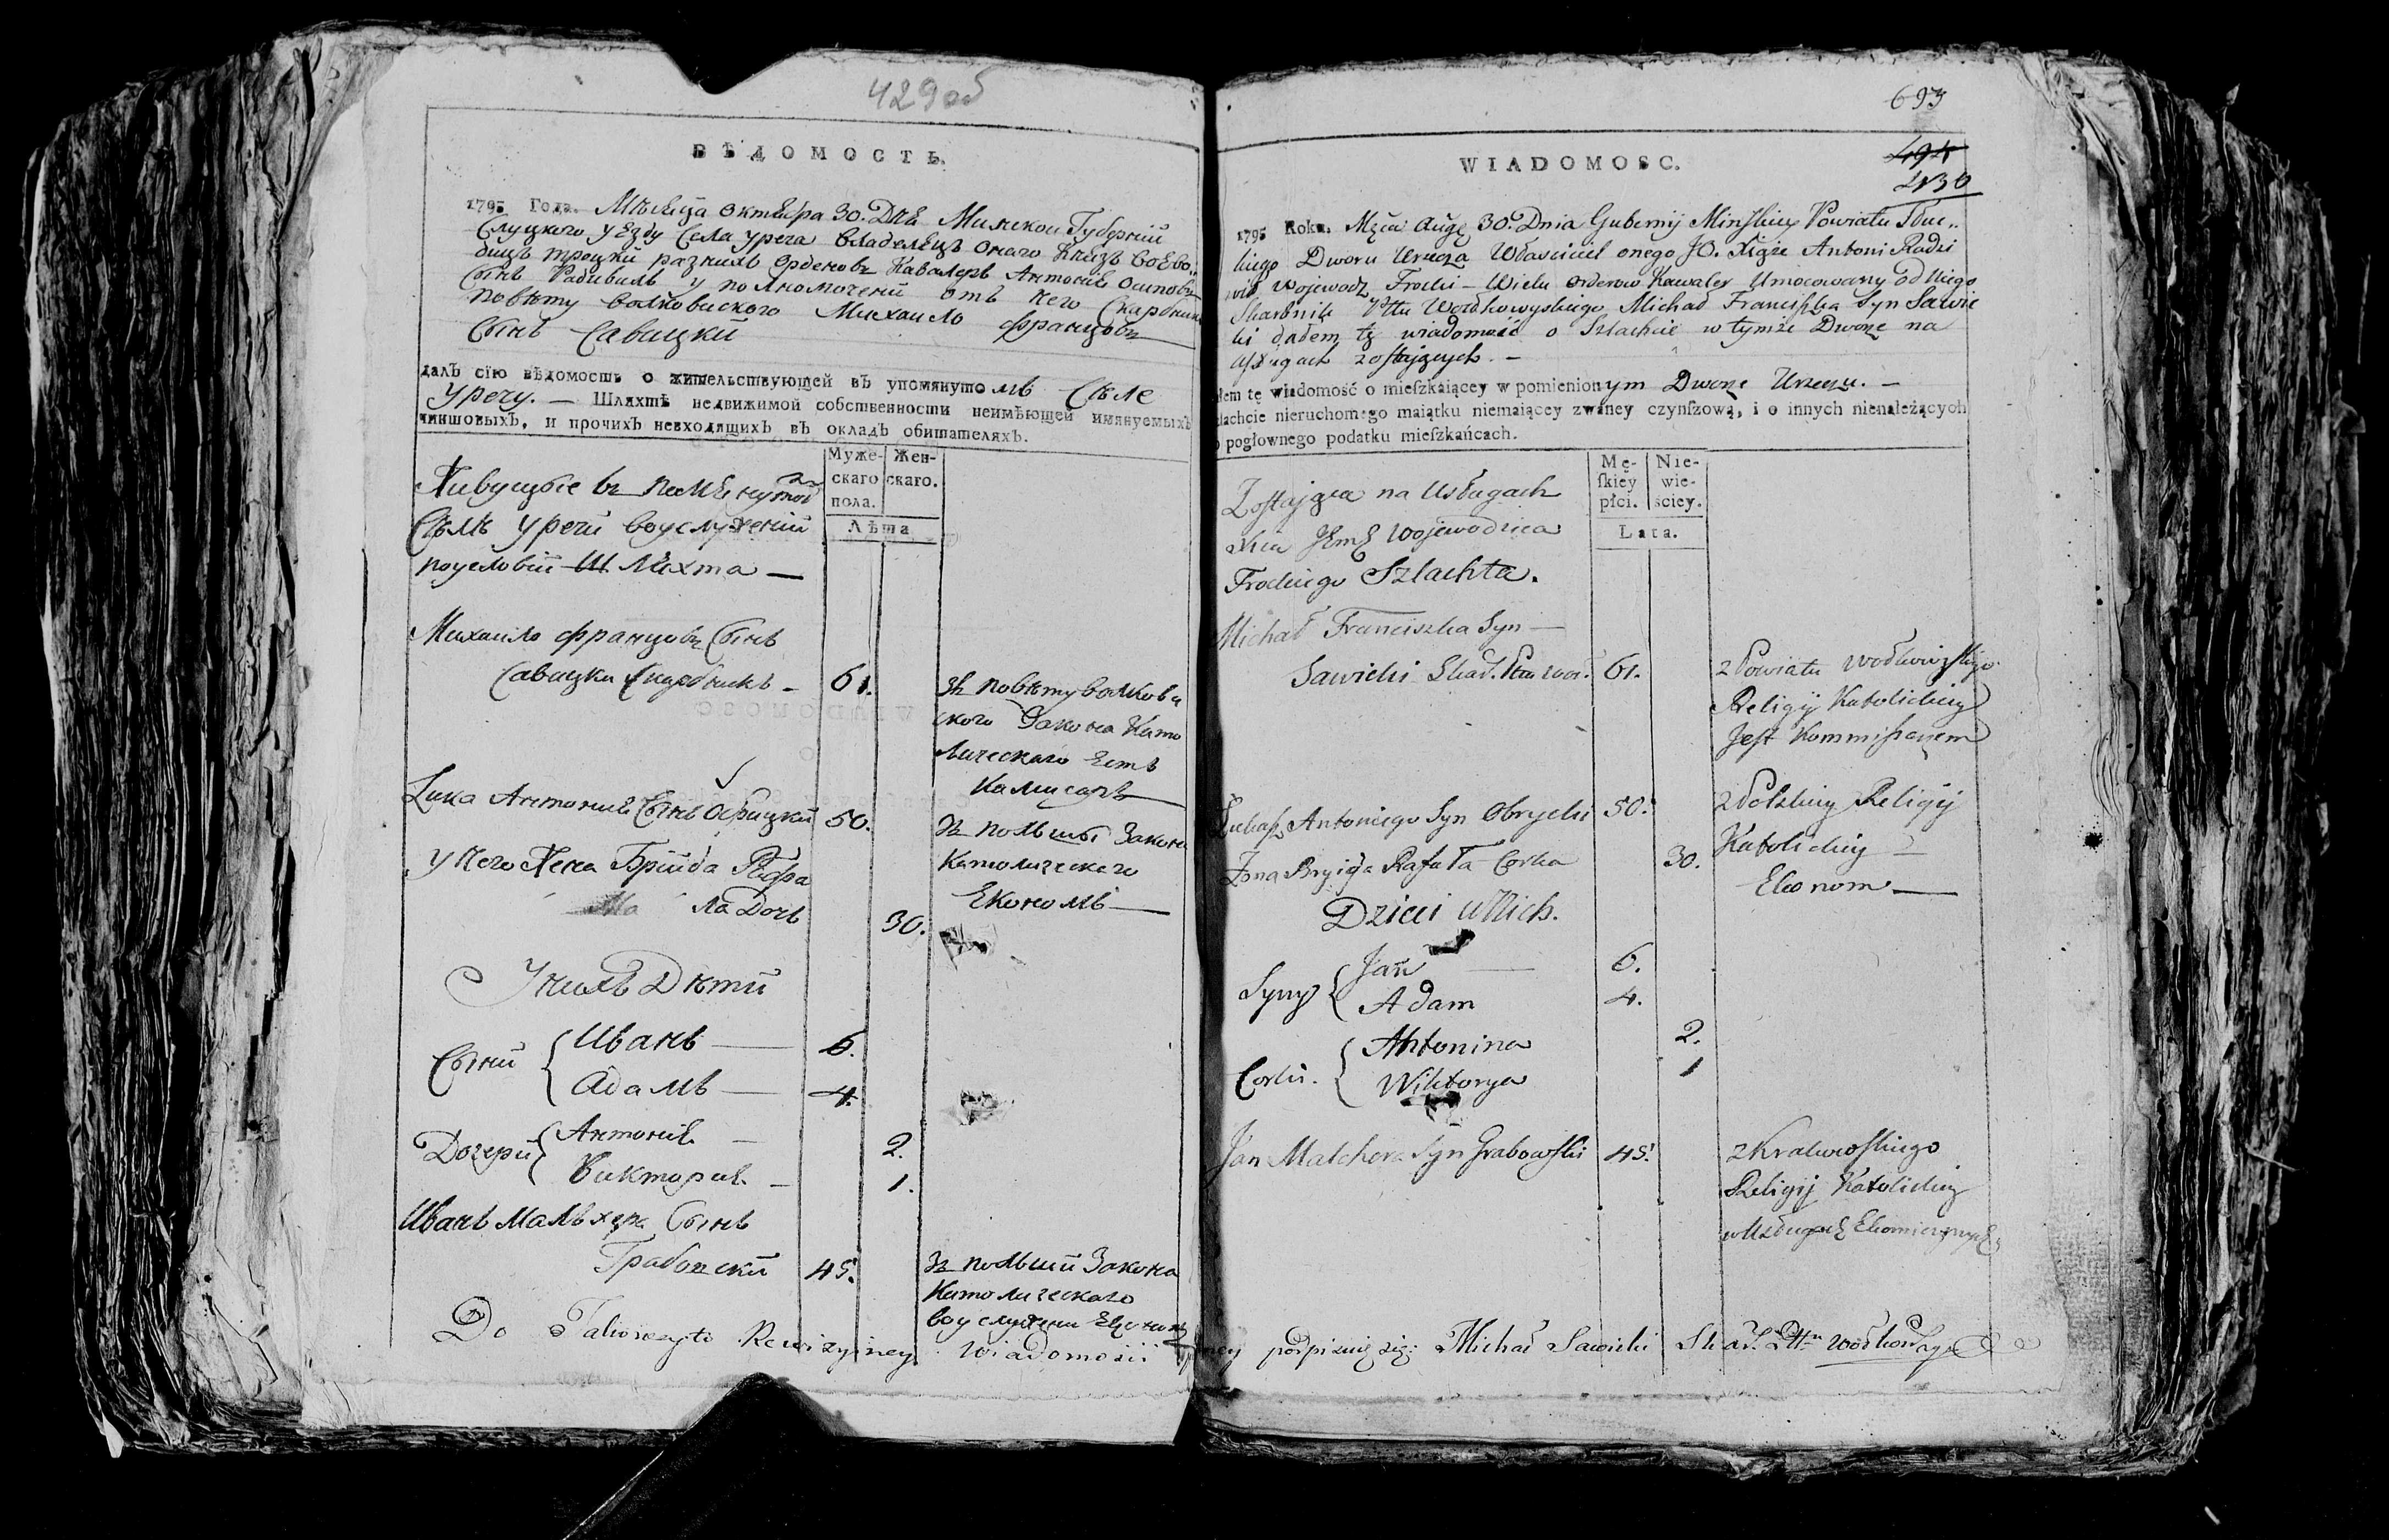 429об
ВѢДОМОСТЬ.
1795 Года. Мѣсяца октября 30. Дня Минской Губерній
Слуцкого уезду Села уреча владелецъ оного Князь воево
дицъ троцкий разныхъ орденовъ Кавалеръ Антоній осиповъ
Сынъ Радивилъ уполномоченій отъ него Скарбникъ
повѣту волковиского Михайло францовъ
Сынъ Савицкий
далъ сїю вѣдомость о жительствующей въ упомянутомъ Селе
уречу. — Шляхтѣ недвижимой собственности неимѣющей имянуемыхъ
чиншовыхъ, и прочихъ невходящихъ въ окладъ обитателяхъ.
Муже-
скаго
пола.
Жен-
скаго.
Лѣта
Живущые въ
Селѣ уречи воуслужений
поусловій Шляхта —
Михайло францовъ Сынъ
Савицки Скарбникъ - 61.
зъ повѣту волкови
ского Закона Като
лического естъ
Камисаръ
Лука Антоніевъ Сынъ Обрицкий 50.
зъ польшы Закона
Католического
Економъ
у него Жена Бригида Рафа
ла Дочь 30.
У нихъ Дѣти
Сыни { Иванъ — 6.
Адамъ — 4.
Дочери { Антонія — 2.
Викторія — 1.
Иванъ Мальхера Сынъ
Грабовский 45.
зъ польши Закона
Католического
воуслужени
Do Takowey to Rewizyiney Wiadomości
693
494
430
WIADOMOSC.
1795 Roku. Męca Augę 30. Dnia Gubernij Minskiey Powiatu Słuc„
kiego Dworu Urzecza Własciciel onego JO. Xiąże Antoni Radzi
wił Wojewodz Trocki - Wielu Orderow Kawaler Umocowany od niego
Skarbnik Pttu Wołkowyskiego Michał Franciszka Syn Sawic
ki dałem tę wiadomość o Szlachcie w tymże Dworze na
usługach zostających. —
łem tę wiadomość o mieſzkaiącey w pomienionym Dworze Urzeczu. —
zlachcie nieruchomego maiątku niemaiącey zwaney czynſzową, i o innych nienależących
o pogłownego podatku mieſzkańcach.
Mę-
ſkiey
płci.
Nie-
wie-
ściey.
Lata.
Zostająca na Usługach
Xcia JEmę Wojewodzica
Trockiego Szlachta.
Michał Franciszka Syn —
Sawicki Skar. Pttu woł. 61.
z Powiatu Wołkowyskiego
Religij Katolickiey
Jest Kommissarzem
Łukasz Antoniego Syn Obrycki 50.
z Polskiey Religij
Katolickiey —
Ekonom —
Żona Bryida Rafała Corka 30.
Dzieci U Nich.
Syny { Jan — 6.
Adam 4.
Corki. { Antonina 2.
Wiktorya 1
Jan Malchera Syn Grabowski 45.
z Krakowskiego
Religij Katolickiey
w Usługach Ekonomicznych
podpisuię się: Michał Sawicki Skar. Pttu Wołkowyski